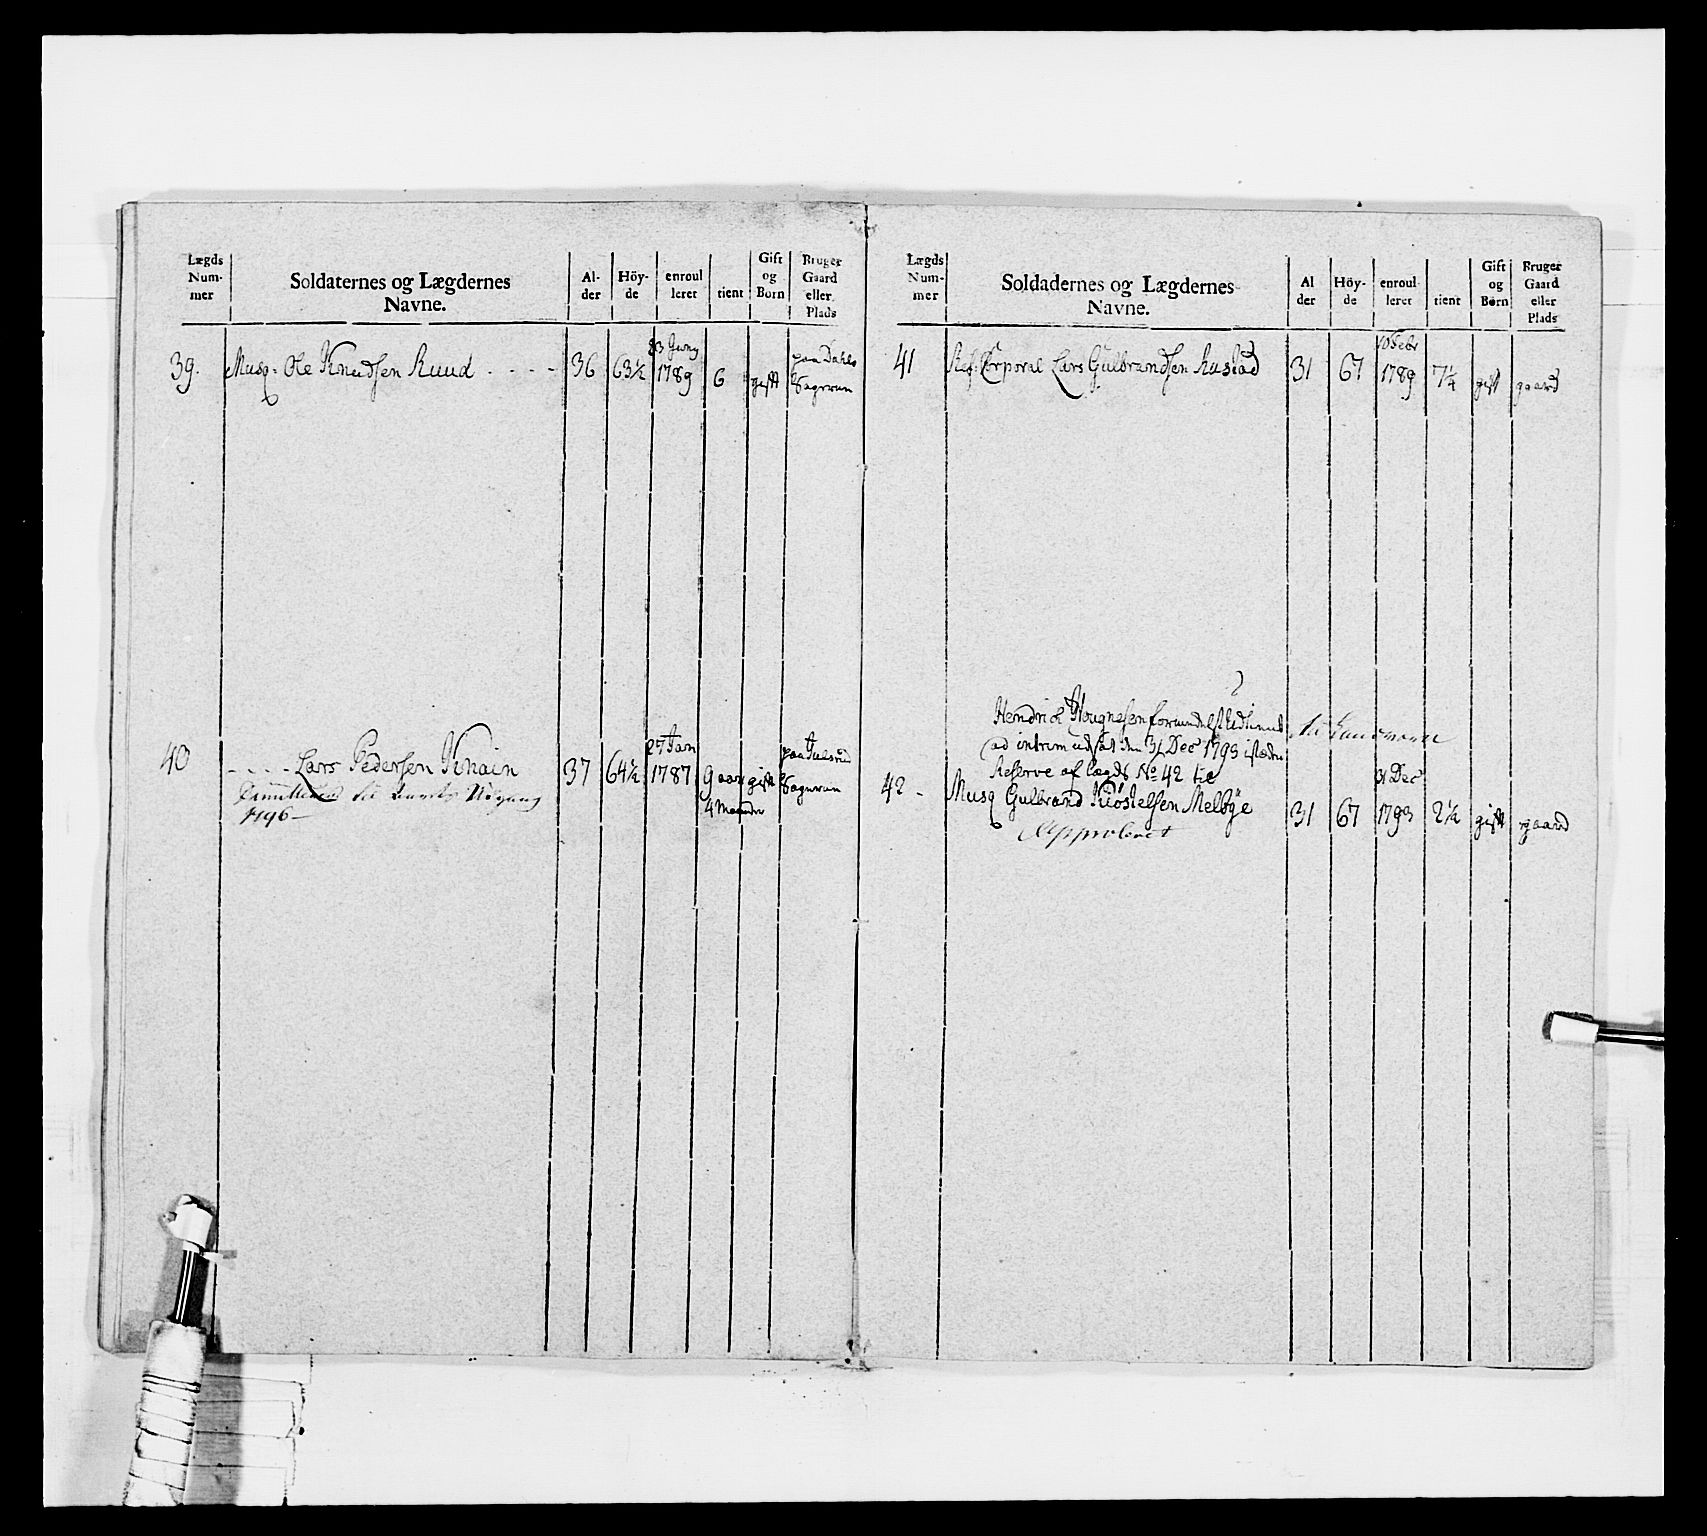 Lægds Num- mer | Soldaternes og Lægdernes Navne. | Al- der | Höy- de | enroul leret | tient | Gift og Børn | Bruger Gaard eller Plads
39. Musq. Ole Knudsen Ruud . - - - 36 63½ 23 Juny 1789 6 gift paa Dahls
40 - - - - Lars Pedersen 37 64½ 27 Jan 1787 9 aar gift paa
4 Maaneder
1796 -
Lægds Num- mer | Soldadernes og Lægdernes Navne. | Al der | Höy- de | enroul- leret | tient | Gift og Børn | Bruger Gaard eller Plads
41 Ref. Corporal Lars Gulbrandsen Rustad 31 67 10 Febr 1789 7¼ gift gaard
Hendrich
ad intrim udsat den 31 Dec 1793 istæden
Reserve af Lægds No 42 til
42 - Musq Gulbrand Kiøstelsen Melbye 31 67 31 Dec 1793 2½ gift gaard
Approberet